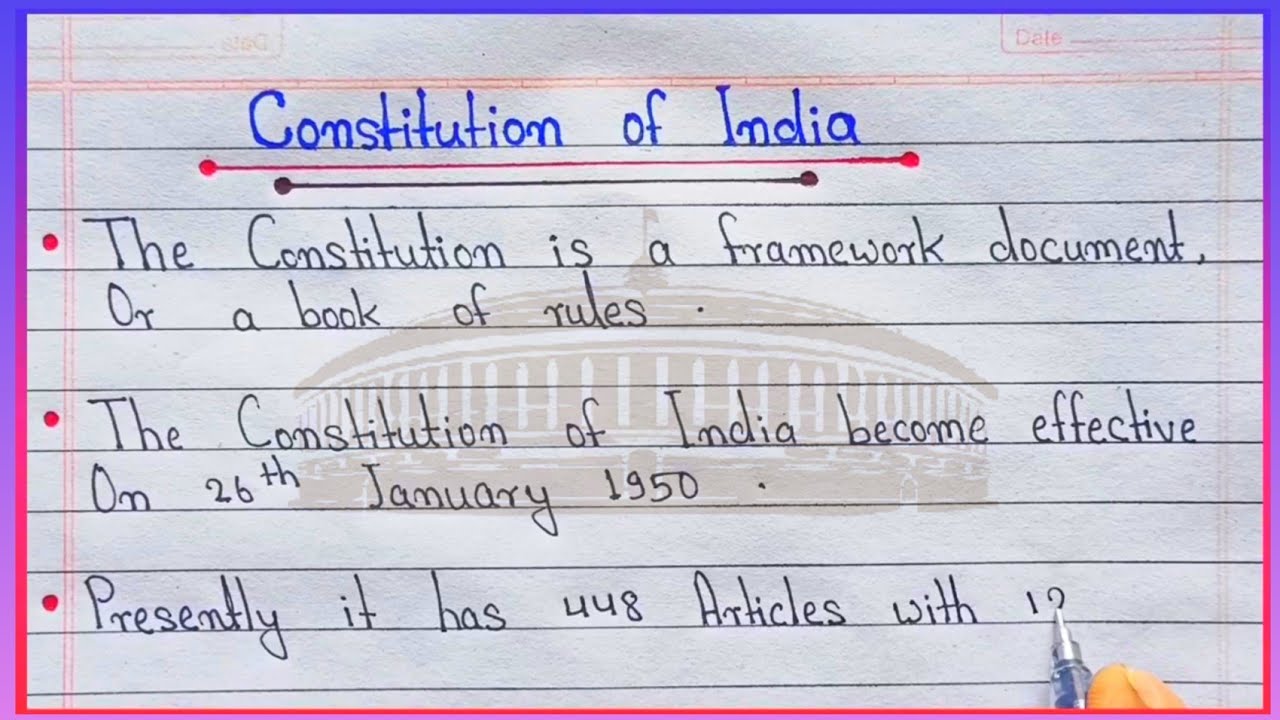 Date
Constitution of India
• The Constitution is a framework document,
Or a book of rules .
• The Constitution of India become effective
On 26th January 1950 .
• Presently it has 448 Articles with 12